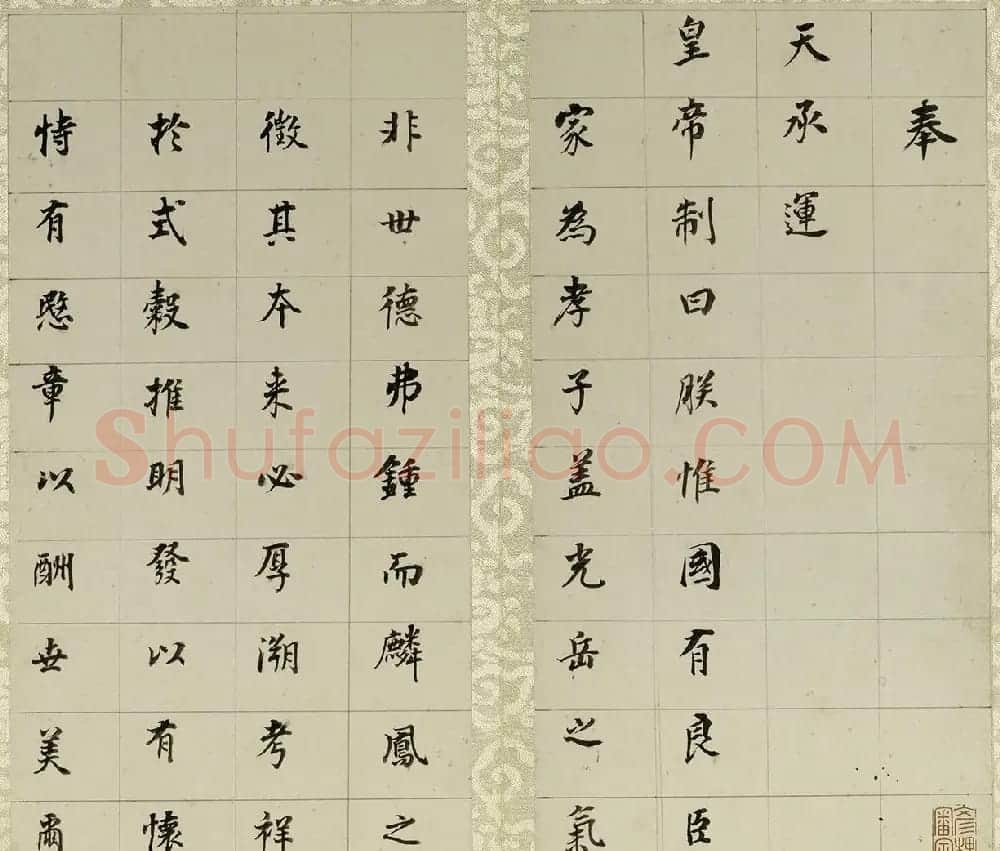 奉
天承運
皇帝制曰朕惟國有良臣
家為孝子盖光岳之氣
非世德弗鍾而麟鳳之
徵其本来必厚溯考祥
於式穀推明發以有懷
恃有愍章以酬世美爾
Shufaziliao.COM